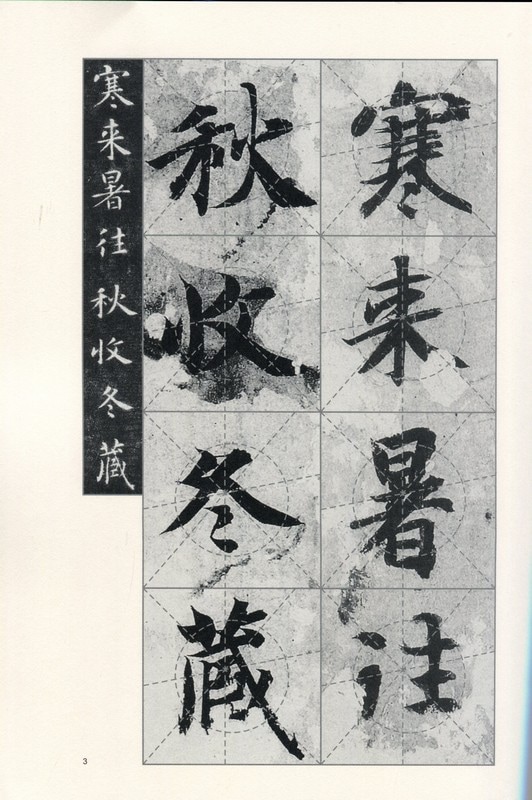 寒来暑往
秋收冬藏
寒来暑往秋收冬藏
3